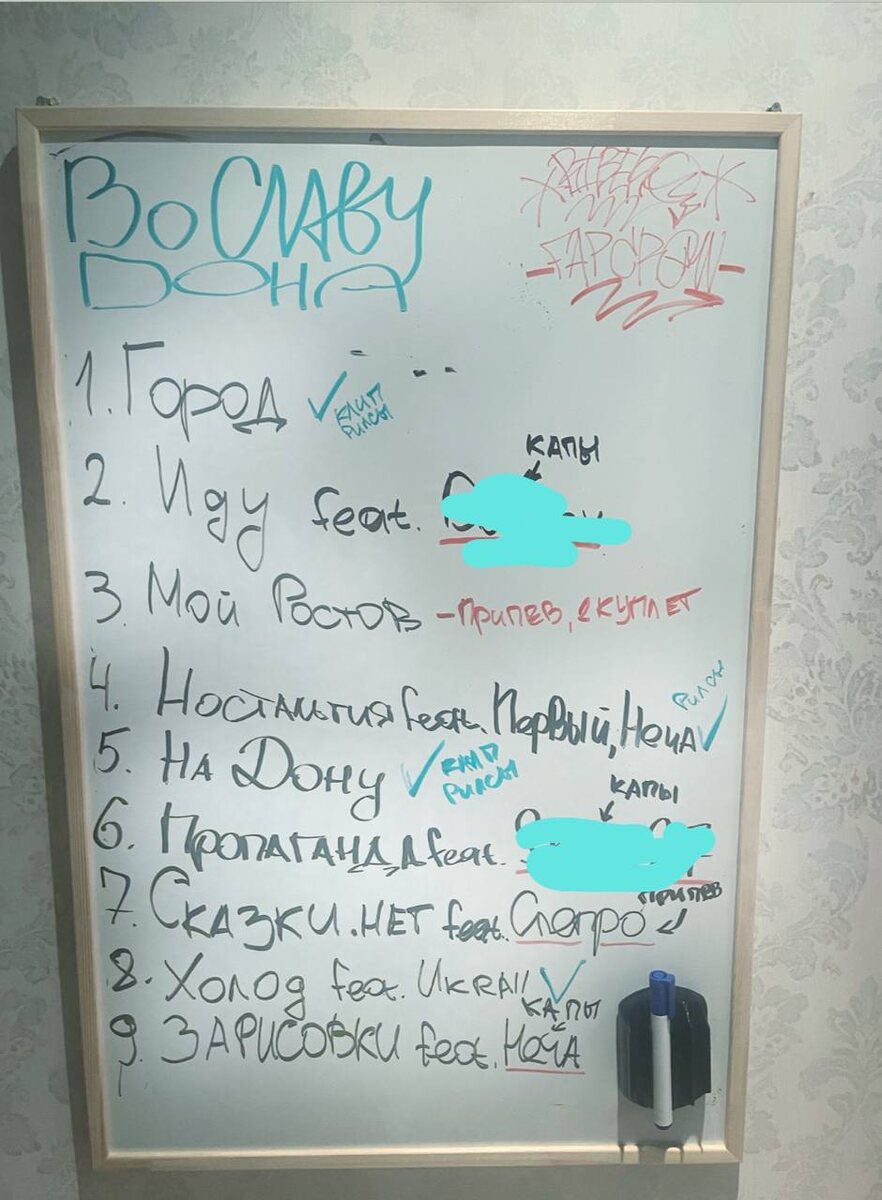 Во Славу
Дона
1. Город ✓ клип
рилсы
капы
2. Иду feat.
3. Мой Ростов - припев, 2 куплет
рилсы
4. Ностальгия feat. Первый, Неча ✓
5. На Дону ✓ клип
рилсы
капы
6. Пропаганда feat.
припев
7. Сказки.нет feat. Слепро
8. Холод feat. UKRAll ✓
капы
9. Зарисовки feat. Неча